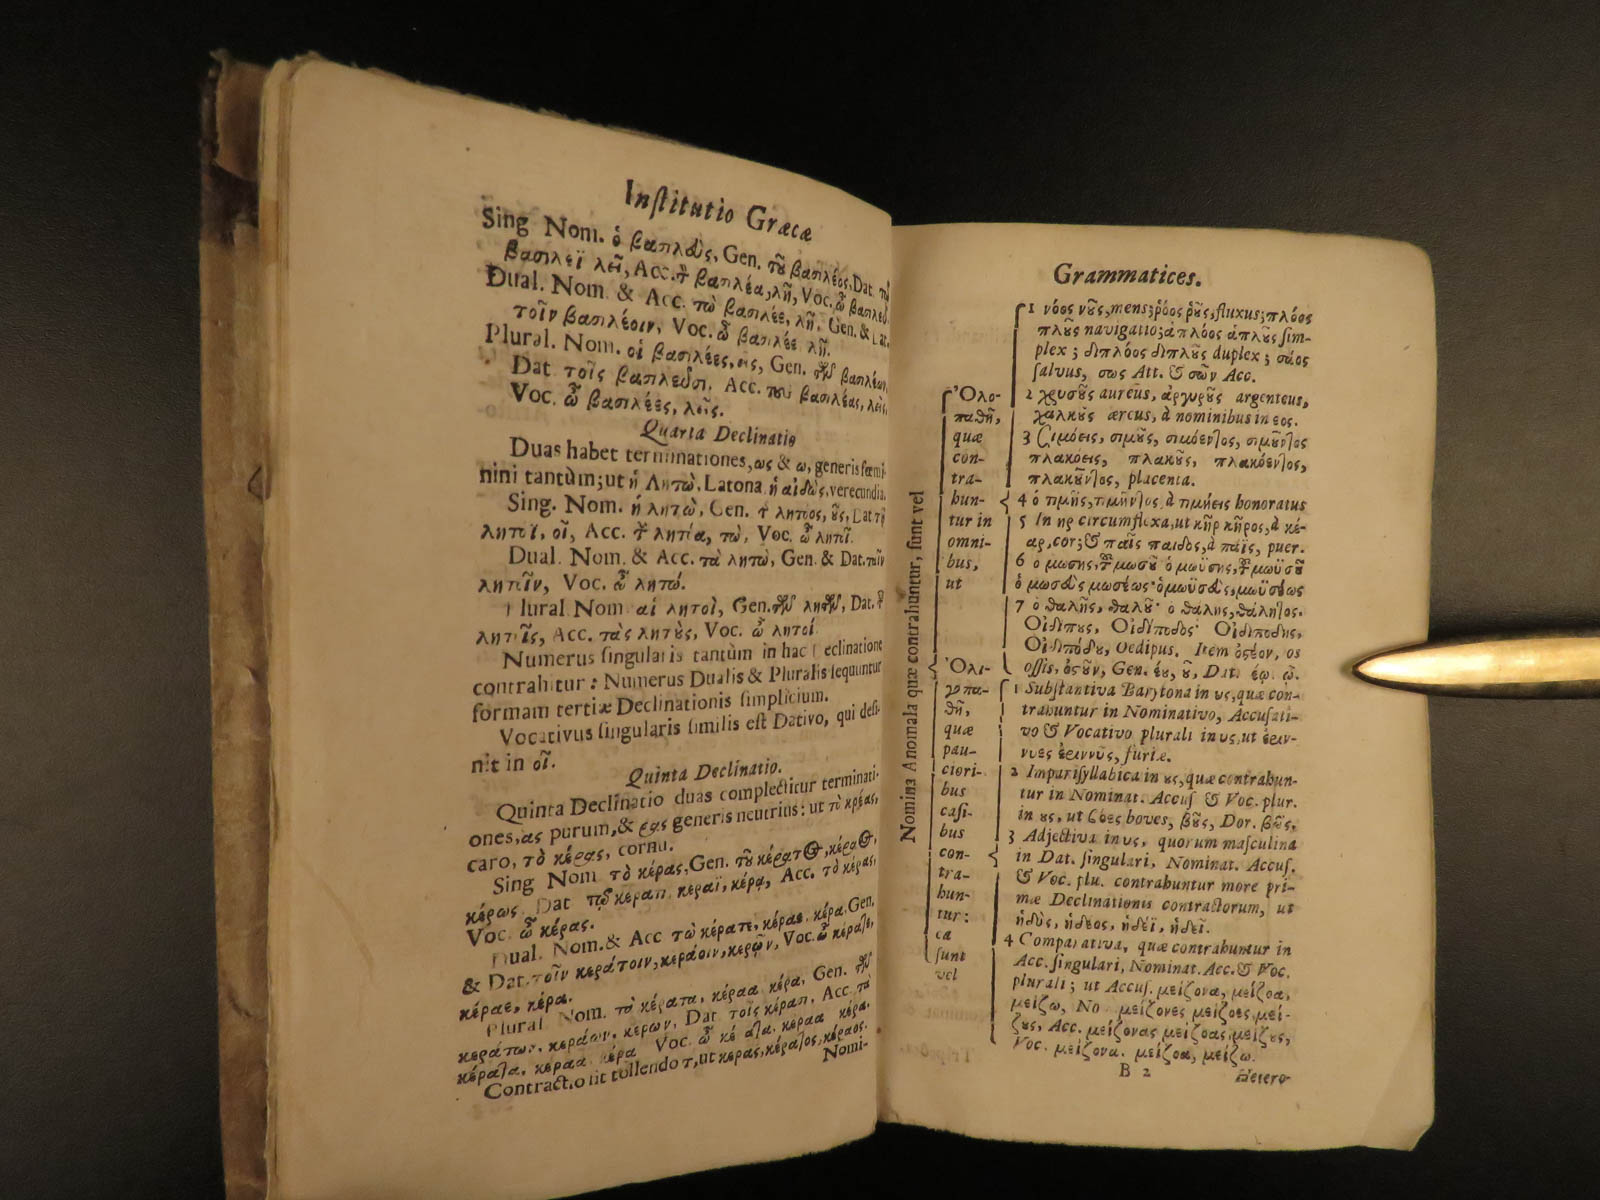 Institutio Græcæ
Sing Nom. ὁ βασιλεὺς, Gen. τοῦ βασιλέος, Dat. τῷ
βασιλεῖ λεῖ, Acc. τ βασιλέα, λῆ, Voc. ὦ βασιλεῦ
Dual. Nom. & Acc. τὼ βασιλέε, λῆ. Gen. & Dat.
τοῖν βασιλέοιν, Voc. ὦ βασιλέε λῆ.
Plural. Nom. οἱ βασιλέες, εις, Gen. τῶν βασιλέων,
Dat τοῖς βασιλεῦσι, Acc. τοὺς βασιλέας, λεῖς,
Voc. ὦ βασιλέες, λεῖς.
Quarta Declinatio
Duas habet terminationes, ως & ω, generis fœmi-
nini tantùm; ut ἡ Λητὼ, Latona, ἡ αἰδὼς, verecundia.
Sing. Nom. ἡ λητὼ, Gen. τ λητόος, οῦς, Dat τῇ
λητόϊ, οῖ, Acc. τ λητόα, τὼ, Voc. ὦ λητοῖ.
Dual. Nom. & Acc. τὰ λητὼ, Gen. & Dat. ταῖν
λητοῖν, Voc. ὦ λητώ.
Plural. Nom αἱ λητοὶ, Gen. τῶν λητῶν, Dat. τ
λητοῖς, Acc. τὰς λητοὺς, Voc. ὦ λητοί
Numerus singularis tantùm in hac Declinatione
contrahitur: Numerus Dualis & Pluralis sequuntur
formam tertiæ Declinationis simplicium.
Vocativus singularis similis est Dativo, qui desi-
nit in οῖ.
Quinta Declinatio.
Quinta Declinatio duas complectitur terminati-
ones, ας purum, & ρας generis neutrius: ut τὸ κρέας,
caro, τὸ κέρας, cornu.
Sing Nom τὸ κέρας, Gen. τοῦ κέρατος, κέραος,
κέρως. Dat τῷ κέρατι κέραϊ, κέρᾳ, Acc. τὸ κέρας,
Voc. ὦ κέρας.
Dual. Nom. & Acc τὼ κέρατε, κέραε, κέρα, Gen.
& Dat. τοῖν κεράτοιν, κεράοιν, κερῷν, Voc. ὦ κέρατε,
κέραε, κέρα.
Plural Nom. τὰ κέρατα, κέραα κέρα, Gen. τῶν
κεράτων, κεράων, κερῶν, Dat τοῖς κέρασι, Acc τὰ
κέρατα, κέραα κέρα Voc. ὦ κέρατα, κέραα κέρα.
Contractio fit tollendo τ, ut κέρας, κέρατος, κέραος.
Nomi-
Grammatices.
Nomina Anomala quæ contrahuntur, sunt vel
Ὁλο-
παθῆ,
quæ
con-
tra-
hun-
tur in
omni-
bus,
ut
1 νόος νοῦς, mens; ῥόος ῥοῦς, fluxus; πλόος
πλοῦς navigatio; ἁπλόος ἁπλοῦς sim-
plex; διπλόος διπλοῦς duplex; σάος
salvus, σως Att. & σῶν Acc.
2 χρυσοῦς aureus, ἀργυροῦς argenteus,
χαλκοῦς æreus, à nominibus in εος.
3 Σιμόεις, σιμοῦς, σιμόεντος, σιμοῦντος
πλακόεις, πλακοῦς, πλακόεντος,
πλακοῦντος, placenta.
4 ὁ τιμῆς, τιμῆντος à τιμήεις honoratus
5 In ηρ circumflexa, ut κῆρ κῆρος, à κέ-
αρ, cor; & παῖς παιδος, à πάϊς, puer.
6 ὁ μωσης, τ μωσοῦ ὁ μωϋσης, τ μωϋσοῦ
ὁ μωσεὺς μωσέως ὁ μωϋσεὺς, μωϋσέως
7 ὁ θαλῆς, θαλοῦ ὁ θάλης, θάλητος.
Οἰδίπους, Οἰδίποδος Οἰδιπόδης,
Οἰδιπόδου, Oedipus. Item ὀστέον, os
ossis, ὀστοῦν, Gen. έου, οῦ, Dat. έῳ, ῷ.
Ὀλι-
γοπα-
θῆ,
quæ
pau-
ciori-
bus
casi-
bus
con-
tra-
hun-
tur:
ea
sunt
vel
1 Substantiva Barytona in υς, quæ con-
trahuntur in Nominativo, Accusati-
vo & Vocativo plurali in υς, ut ἐριν-
νυες ἐριννῦς, furiæ.
2 Imparisyllabica in ους, quæ contrahun-
tur in Nominat. Accus & Voc. plur.
in ους, ut βόες boves, βοῦς, Dor. βῶς.
3 Adjectiva in υς, quorum masculina
in Dat. singulari, Nominat. Accus.
& Voc. plu. contrahuntur more pri-
mæ Declinationis contractorum, ut
ἡδὺς, ἡδέος, ἡδέϊ, ἡδεῖ.
4 Comparativa, quæ contrahuntur in
Acc. singulari, Nominat. Acc. & Voc.
plurali; ut Accus. μείζονα, μείζοα,
μείζω, No μείζονες μείζοες, μεί-
ζους, Acc. μείζονας μείζοας, μείζους,
Voc. μείζονα. μείζοα, μείζω.
B 2
Hetero-